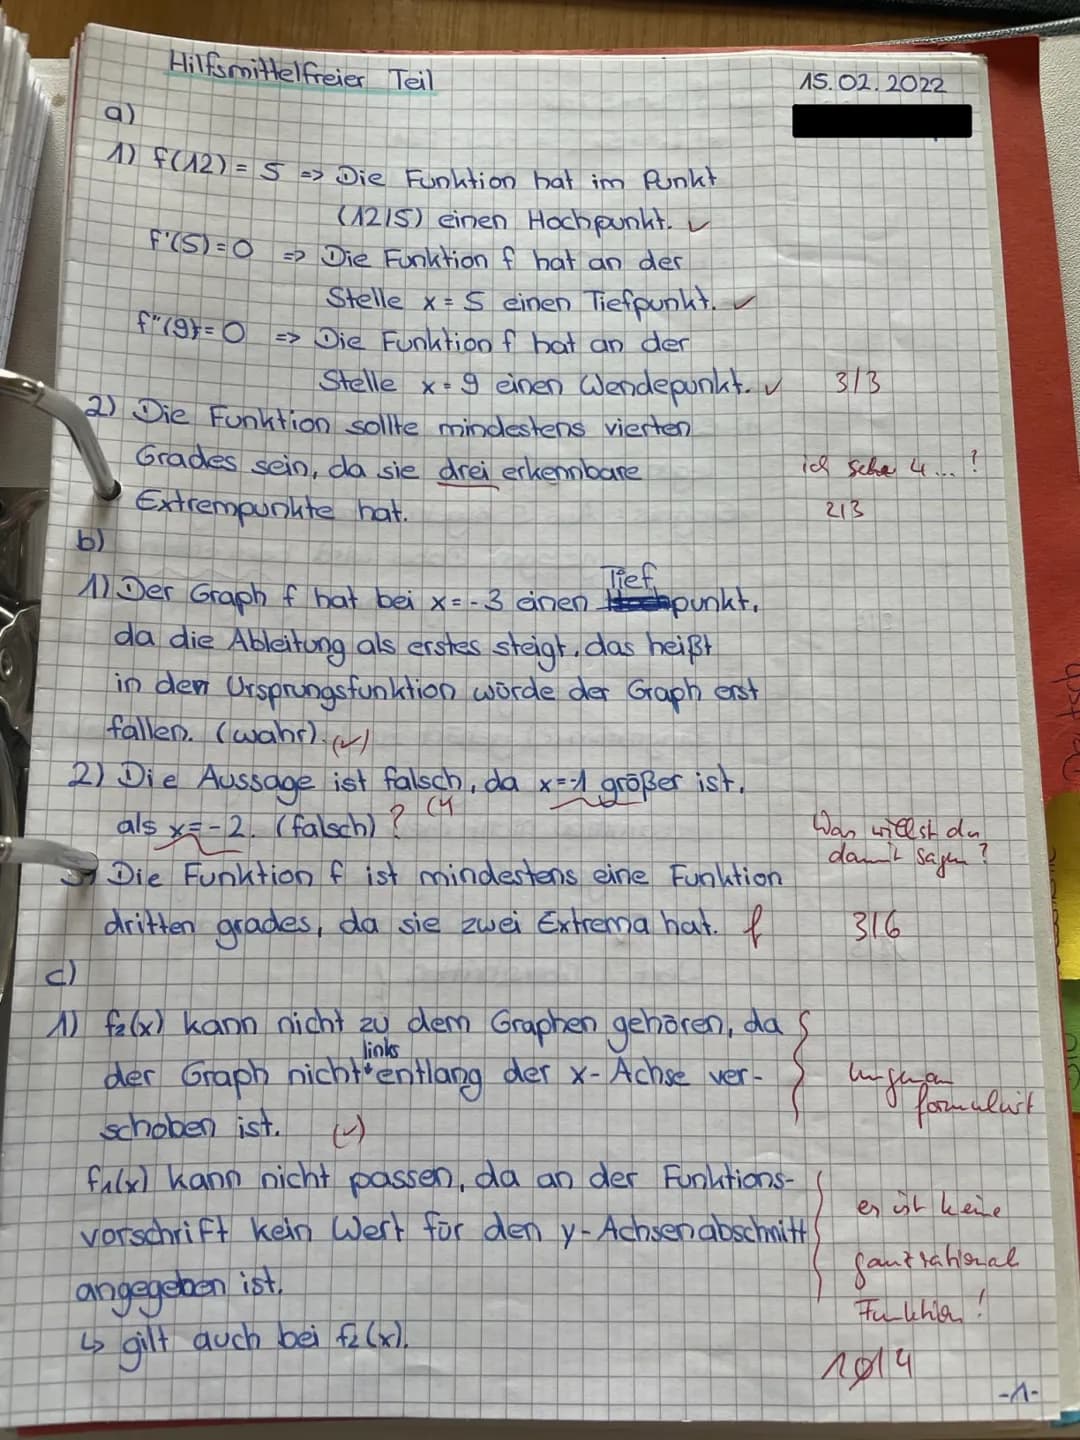 Hilfsmittelfreier Teil
15.02.2022
a)
1) f(12) = 5 => Die Funktion hat im Punkt
(12/5) einen Hochpunkt. ✓
f'(5) = 0 => Die Funktion f hat an der
Stelle x = 5 einen Tiefpunkt. ✓
f''(9) = 0 => Die Funktion f hat an der
Stelle x = 9 einen Wendepunkt. ✓ 3/3
2) Die Funktion sollte mindestens vierten
Grades sein, da sie drei erkennbare ich sehe 4...!
Extrempunkte hat. 2/3
b)
1) Der Graph f hat bei x = -3 einen Tiefpunkt,
da die Ableitung als erstes steigt, das heißt
in der Ursprungsfunktion würde der Graph erst
fallen. (wahr). (✓)
2) Die Aussage ist falsch, da x=-1 größer ist,
als x = -2. (falsch) ? Was willst du
damit sagen?
3) Die Funktion f ist mindestens eine Funktion
dritten grades, da sie zwei Extrema hat. f 3/6
c)
1) f₂(x) kann nicht zu dem Graphen gehören, da
der Graph nicht links entlang der x-Achse ver- ungenau
formuliert
schoben ist. (✓)
f₁(x) kann nicht passen, da an der Funktions-
vorschrift kein Wert für den y-Achsenabschnitt es ist keine
angegeben ist. ganzrational
Funktion!
↳ gilt auch bei f₂(x).
-1-